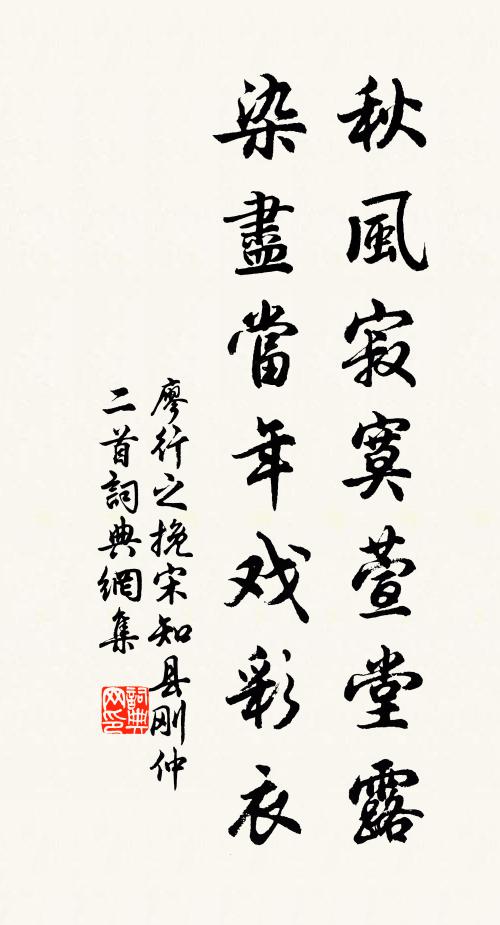 秋風寂寞萱堂露
染盡當年戏彩衣
廖行之挽宋知县刚仲
二首詞典網集
詞典
网印